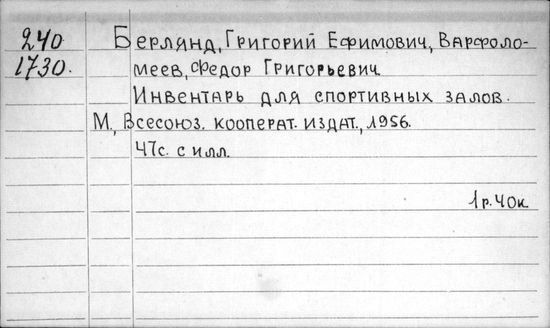 240
1730.
Берлянд, Григорий Ефимович, Варфоло-
меев, Федор Григорьевич
Инвентарь для спортивных залов.
М, Всесоюз. кооперат. издат., 1956.
47с. с илл.
1р. 40к